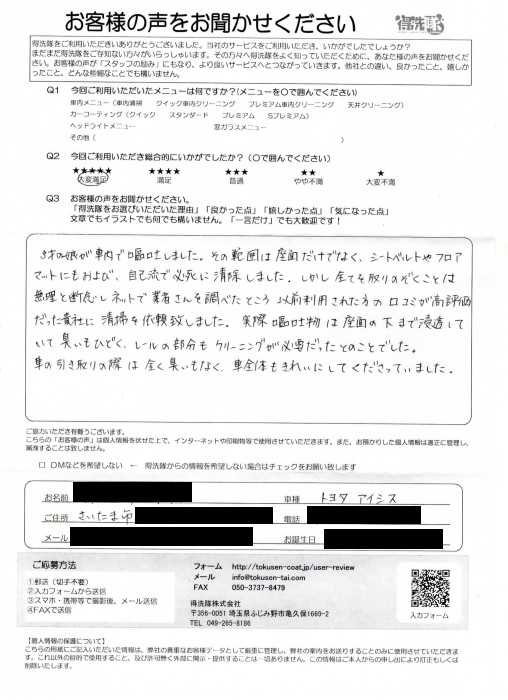 お客様の声をお聞かせください
得洗隊
得洗隊をご利用いただきありがとうございました。当社のサービスをご利用いただき、いかがでしたでしょうか?
まだまだ得洗隊をご存知ない方々がいらっしゃいます。その方々へ得洗隊をよく知っていただくために、あなた様の声をお聞かせください。
お客様の声が「スタッフの励み」にもなり、より良いサービスへとつながっていきます。他社との違い、良かったこと、嬉しかったこと、どんな些細なことでも構いません。
Q1 今回ご利用いただいたメニューは何ですか?(メニューを○で囲んでください)
車内メニュー(車内清掃 クイック車内クリーニング プレミアム車内クリーニング 天井クリーニング)
カーコーティング(クイック スタンダード プレミアム Sプレミアム)
ヘッドライトメニュー 窓ガラスメニュー
その他( )
Q2 今回ご利用いただき総合的にいかがでしたか?(○で囲んでください)
★★★★★ ★★★★ ★★★ ★★ ★
大変満足 満足 普通 やや不満 大変不満
Q3 お客様の声をお聞かせください。
「得洗隊をお選びいただいた理由」「良かった点」「嬉しかった点」「気になった点」
文章でもイラストでも何でも構いません。「一言だけ」でも大歓迎です!
3才の娘が車内で嘔吐しました。その範囲は座面だけでなく、シートベルトやフロア
マットにもおよび、自己流で必死に清掃しました。しかし全てを取りのぞくことは
無理と断念しネットで業者さんを調べたところ以前利用された方の口コミが高評価
だった貴社に清掃を依頼致しました。実際嘔吐物は座面の下まで浸透して
いて臭いもひどく、レールの部分もクリーニングが必要だったとのことでした。
車の引き取りの際は全く臭いもなく、車全体もきれいにしてくださっていました。
ご協力いただき有難うございます。
こちらの「お客様の声」は個人情報を伏せた上で、インターネットや印刷物等で使用させていただきます。また、お預かりした個人情報は適正に管理し、
□ DMなどを希望しない ← 得洗隊からの情報を希望しない場合はチェックをお願い致します
お名前 車種 トヨタ アイシス
ご住所 さいたま市 電話
メール お誕生日
ご応募方法
①郵送(切手不要)
②入力フォームから送信
③スマホ・携帯等で撮影後、メール送信
④FAXで送信
フォーム http://tokusen-coat.jp/user-review
メール info@tokusen-tai.com
FAX 050-3737-8479
得洗隊株式会社
〒356-0051 埼玉県ふじみ野市亀久保1669-2
TEL 049-265-8186
入力フォーム
【個人情報の保護について】
こちらの用紙にご記入いただいた情報は、弊社の貴重なお客様データとして厳重に管理し、弊社の案内をお送りすることのみに使用させていただきます。これ以外の目的で使用すること、及び許可無く外部に開示・提供することは一切ありません。この情報はご本人からの申し出により訂正もしくは削除いたします。